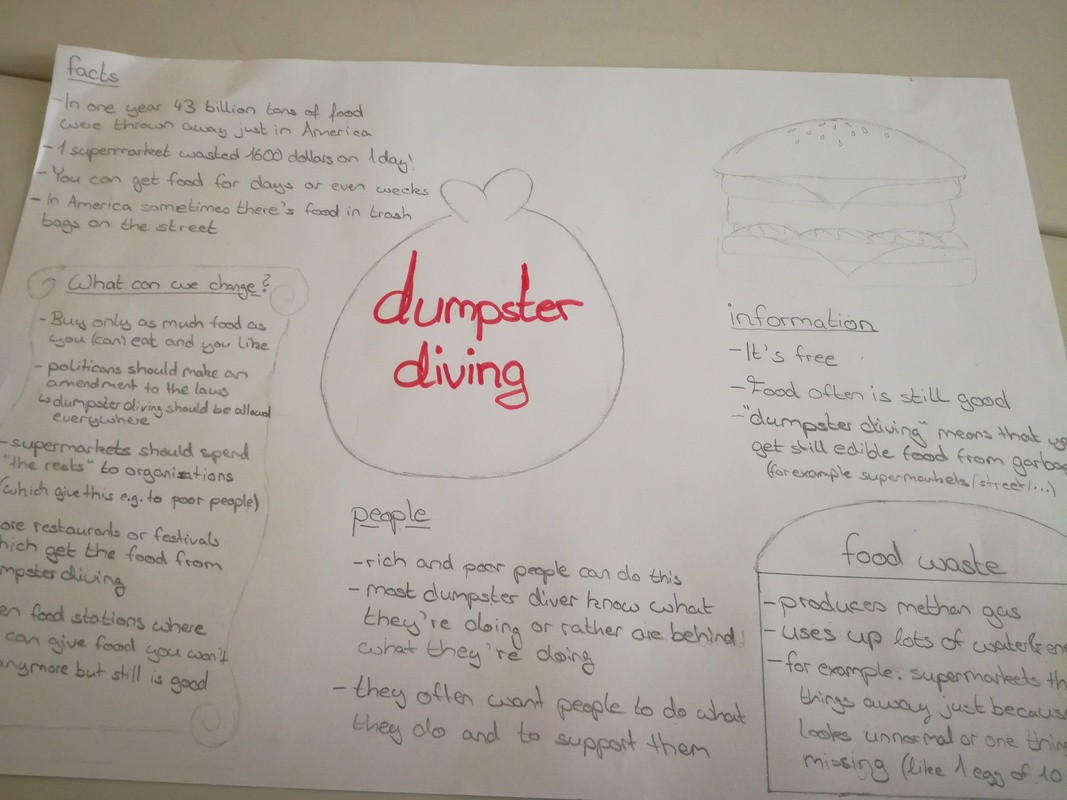 facts
- In one year 43 billion tons of food
were thrown away just in America
- 1 supermarket wasted 1600 dollars on 1 day!
- You can get food for days or even weeks
- In America sometimes there's food in trash
bags on the street
What can we change?
- Buy only as much food as
you (can) eat and you like
- politicans should make an
amendment to the laws
↳ dumpster diving should be allowed
everywhere
- supermarkets should spend
"the rests" to organisations
(which give this e.g. to poor people)
ore restaurants or festivals
hich get the food from
mpster diving
en food stations where
can give food you won't
anymore but still is good
dumpster
diving
people
- rich and poor people can do this
- most dumpster diver know what
they're doing or rather are behind
what they're doing
- they often want people to do what
they do and to support them
information
- It's free
- Food often is still good
- "dumpster diving" means that
get still edible food from garba
(for example supermarkets/street/...)
food waste
- produces methan gas
- uses up lots of water & en
- for example: supermarkets th
things away just becaus
looks unnormal or one thin
missing (like 1 egg of 10